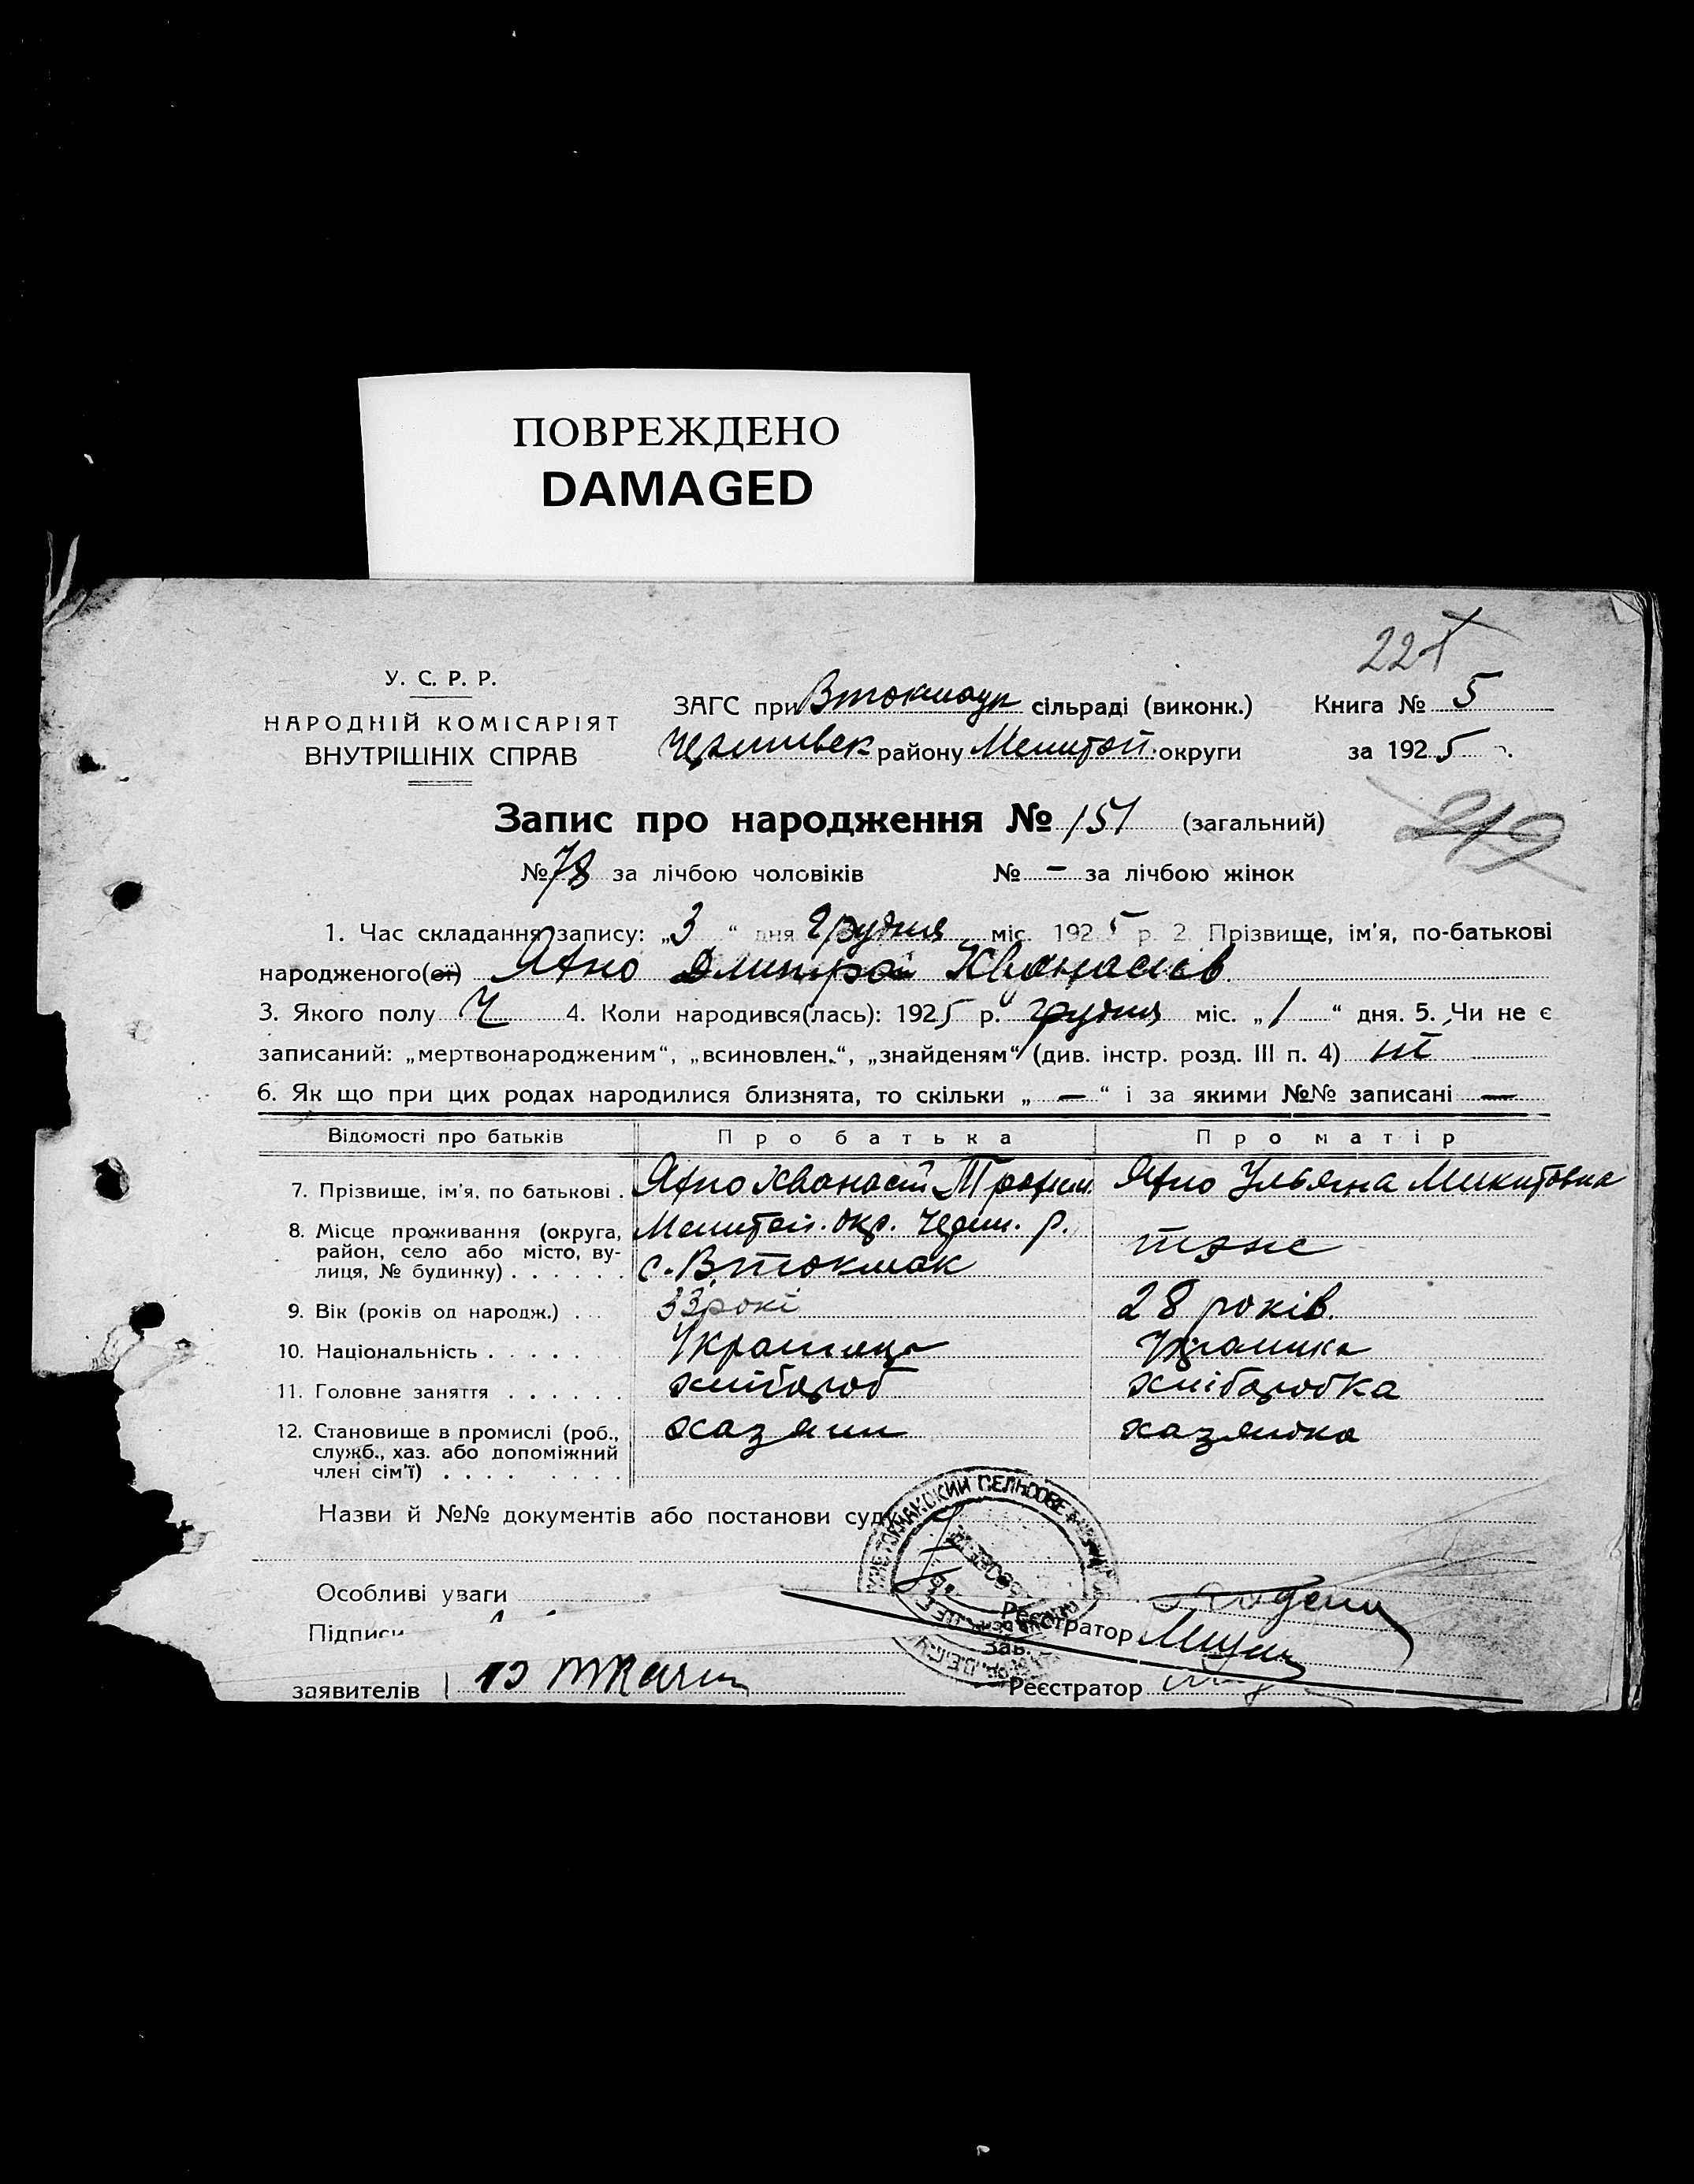 ПОВРЕЖДЕНО
DAMAGED
22
У. С. Р. Р.
НАРОДНІЙ КОМІСАРІЯТ
ВНУТРІШНІХ СПРАВ
ЗАГС при Втокмацк сільраді (виконк.)
района Мелитоп. округи
Книга № 5
за 1925 р.
Запис про народження № 151 (загальний)
219
№ 78 за лічбою чоловіків № — за лічбою жінок
1. Час складання запису: „3“ дня Грудня міс. 1925 р. 2. Прізвище, ім'я, по-батькові
народженого(ої) Яхно Дмитро Хванасіев
3. Якого полу Ч 4. Коли народився(лась): 1925 р. грудня міс. „1“ дня. 5. Чи не є
записаний: „мертвонародженим“, „всиновлен.“, „знайденям“ (див. інстр. розд. III п. 4) ні
6. Як що при цих родах народилися близнята, то скільки „—“ і за якими №№ записані —
Відомості про батьків Про батька Про матір
7. Прізвище, ім'я, по батькові . Яхно Хванасій Трохим. Яхно Ульяна Микитовна
8. Місце проживання (округа, район, село або місто, вулиця, № будинку) . . . . . . Мелитоп. окр. Черни. р.
с. Втокмак теж
9. Вік (років од народж.) . . . 33 рокі 28 років.
10. Національність . . . . . Українець Українка
11. Головне заняття . . . . . . хлібороб хліборобка
12. Становище в промислі (роб., служб., хаз. або допоміжний член сім'ї) . . . . . . . . хазяин хазяйка
Назви й №№ документів або постанови суду
Особливі уваги
Підписи
Реєстратор
Зав.
заявителів
Реєстратор